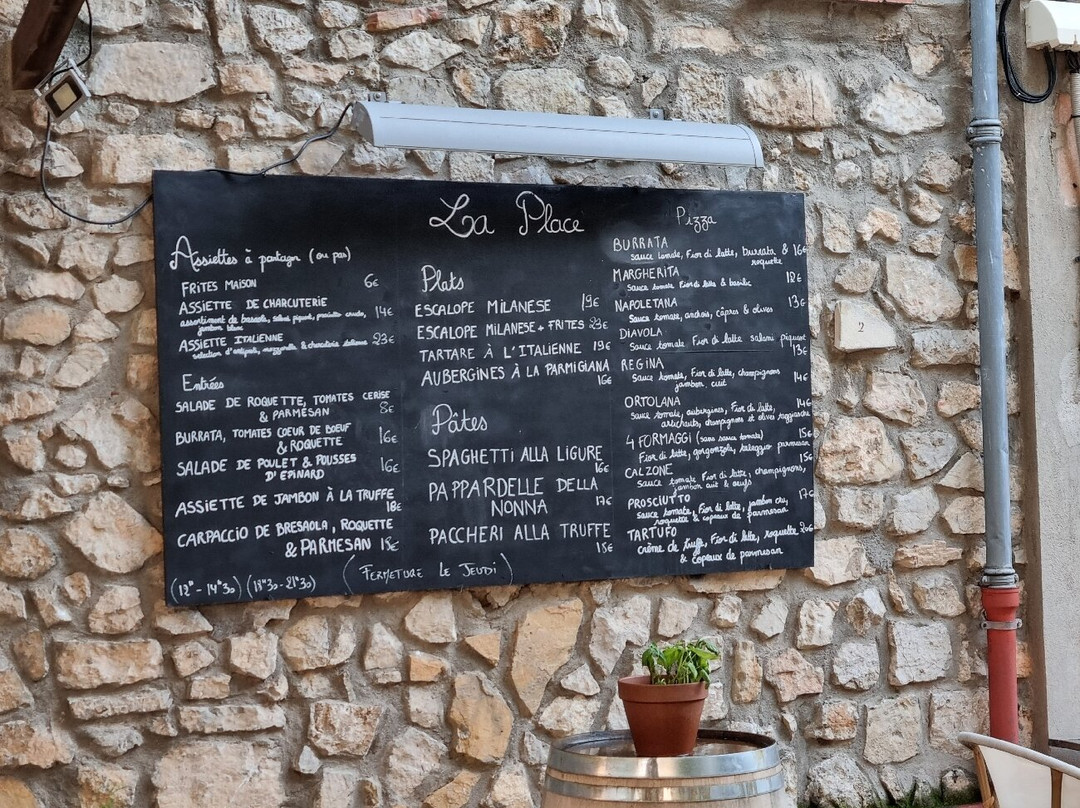 La Place
Assiettes à partager (ou pas)
FRITES MAISON 6€
ASSIETTE DE CHARCUTERIE
assortiment de bresaola, salami piquant, prosciutto crudo, 14€
jambon blanc
ASSIETTE ITALIENNE 23€
sélection d'antipasti, mozzarella & charcuterie italienne
Entrées
SALADE DE ROQUETTE, TOMATES CERISE
& PARMÉSAN 8€
BURRATA, TOMATES COEUR DE BOEUF
& ROQUETTE 16€
SALADE DE POULET & POUSSES
D'EPINARD 16€
ASSIETTE DE JAMBON À LA TRUFFE
18€
CARPACCIO DE BRESAOLA, ROQUETTE
& PARMESAN 15€
(12H - 14H30) (18H30 - 21H30)
(FERMETURE LE JEUDI)
Plats
ESCALOPE MILANESE 19€
ESCALOPE MILANESE + FRITES 23€
TARTARE À L'ITALIENNE 19€
AUBERGINES À LA PARMIGIANA
16€
Pâtes
SPAGHETTI ALLA LIGURE
16€
PAPPARDELLE DELLA
NONNA 17€
PACCHERI ALLA TRUFFE
15€
Pizza
BURRATA
sauce tomate, Fior di latte, burrata & 16€
roquette
MARGHERITA 12€
Sauce tomate Fior di latte & basilic
NAPOLETANA 13€
Sauce tomate, anchois, câpres & olives
DIAVOLA
Sauce tomate Fior di latte salami piquant
13€
REGINA
Sauce tomate, Fior di latte, champignons
jambon cuit 14€
ORTOLANA 14€
Sauce tomate, aubergines, Fior di latte,
artichauts, champignons et olives taggiasche
4 FORMAGGI (sans sauce tomate) 15€
Fior di latte, gorgonzola, taleggio parmesan
CALZONE 15€
Sauce tomate Fior di latte, champignons,
jambon cuit & oeufs
PROSCIUTTO 17€
sauce tomate, Fior di latte, jambon cru,
roquette & copeaux de parmesan
TARTUFO
crème de truffe, Fior di latte, roquette 20€
& copeaux de parmesan
2